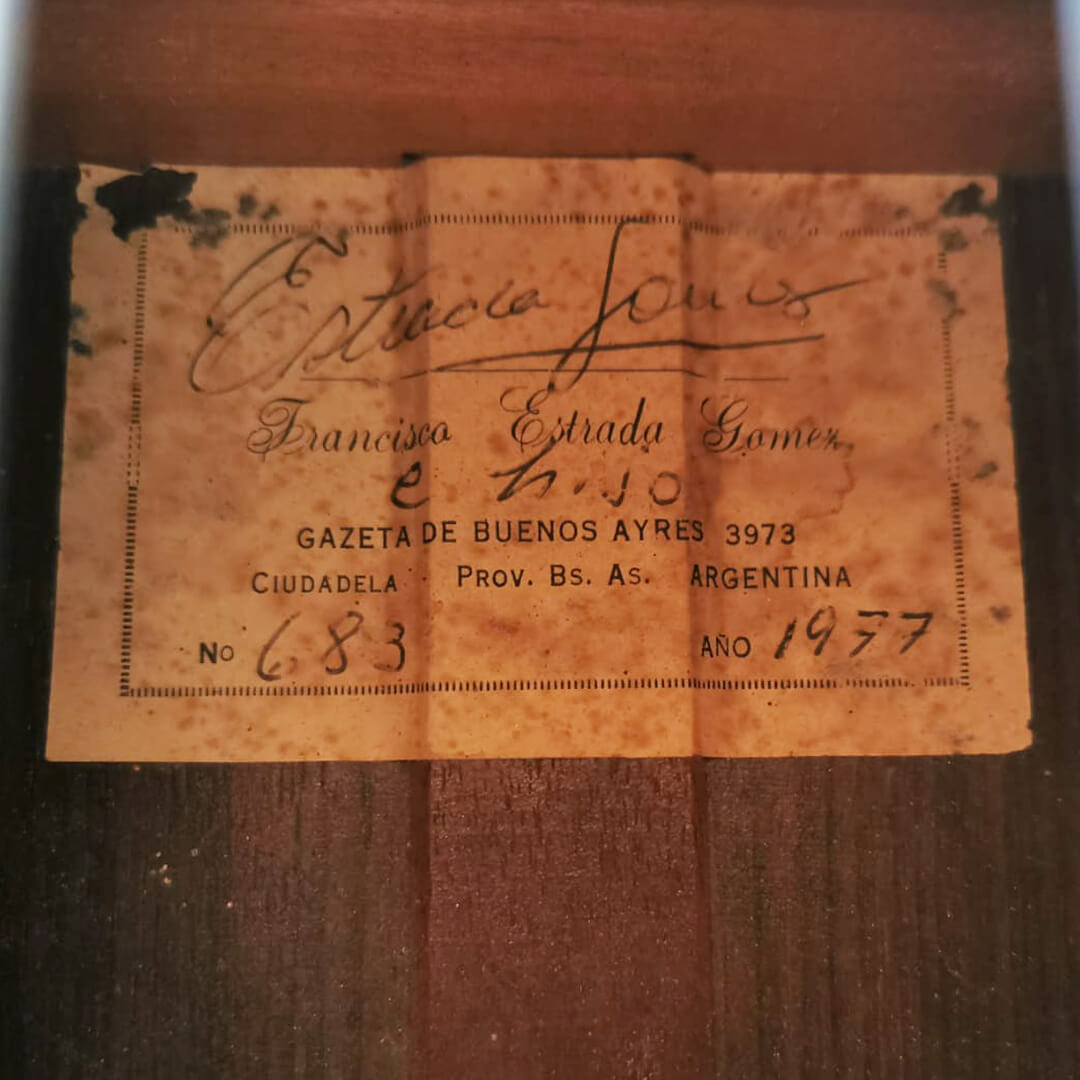 Estrada Gomez
Francisco Estrada Gomez
e hijo
GAZETA DE BUENOS AYRES 3973
CIUDADELA PROV. BS. AS. ARGENTINA
No 683 AÑO 1977